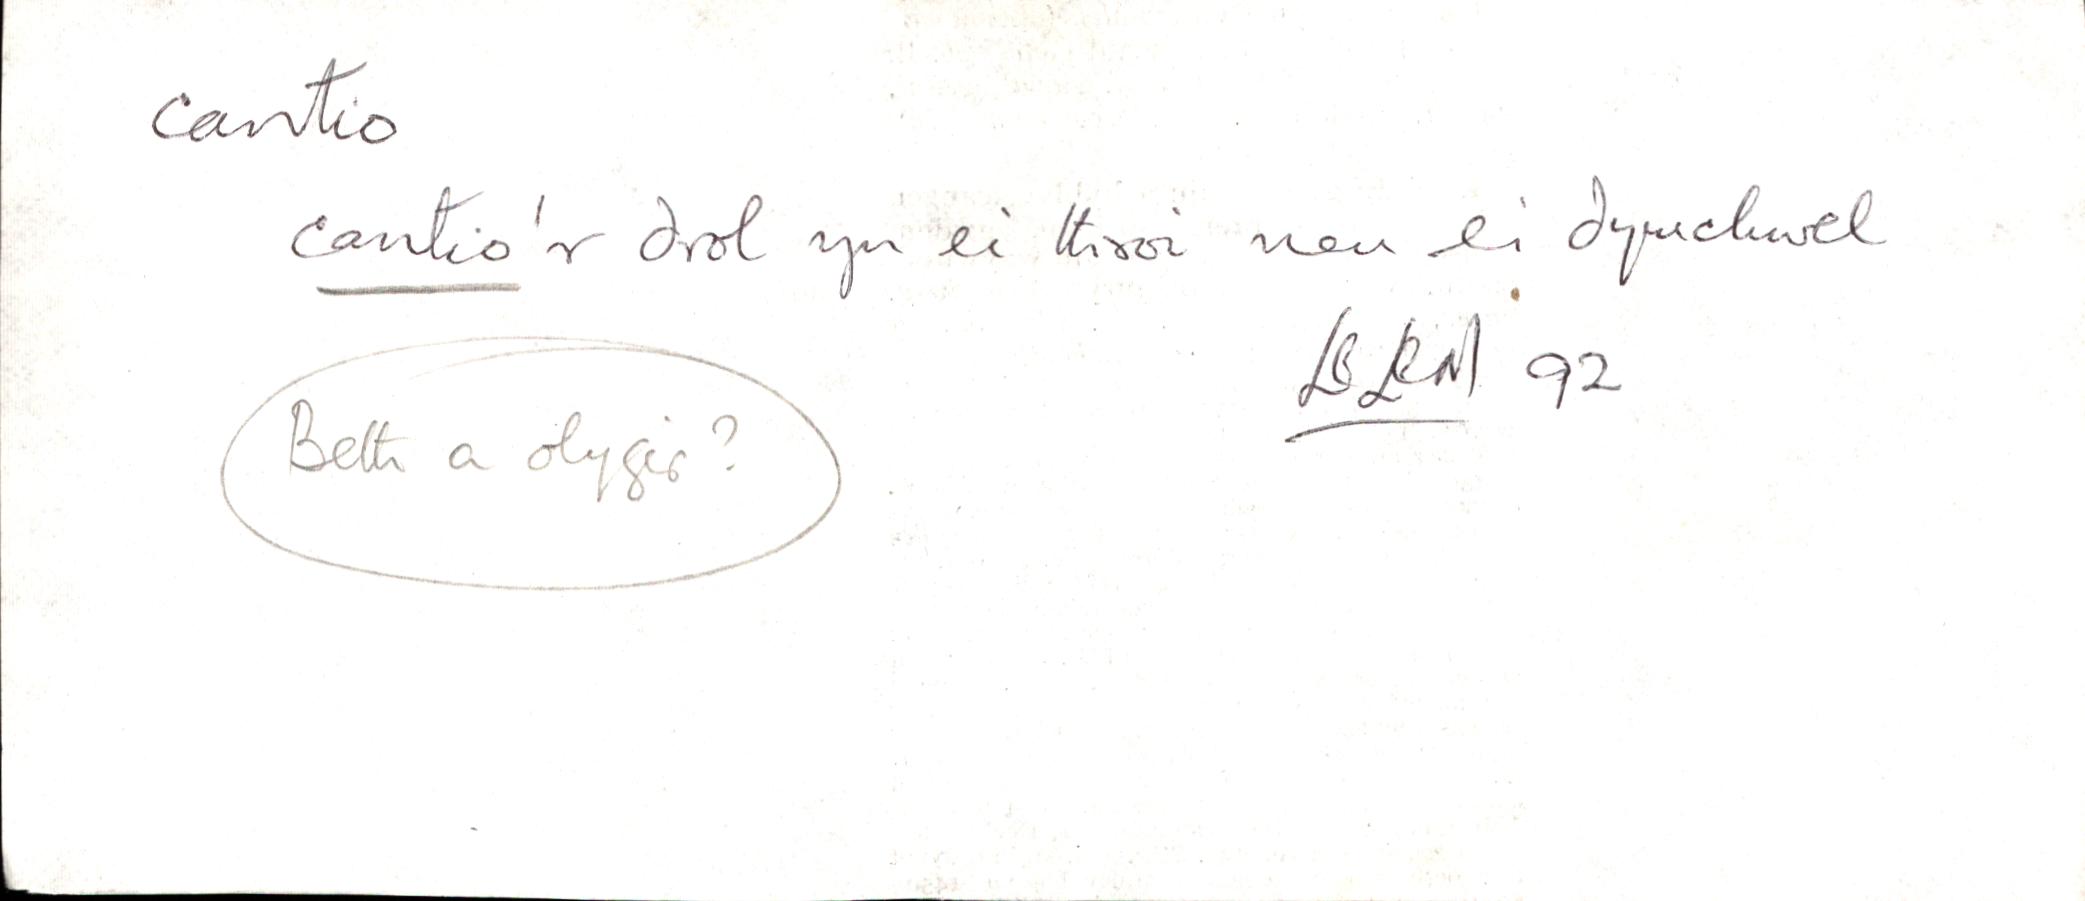 cantio
cantio'r drol yn ei throi neu ei dymchwel
92
Beth a olygir?